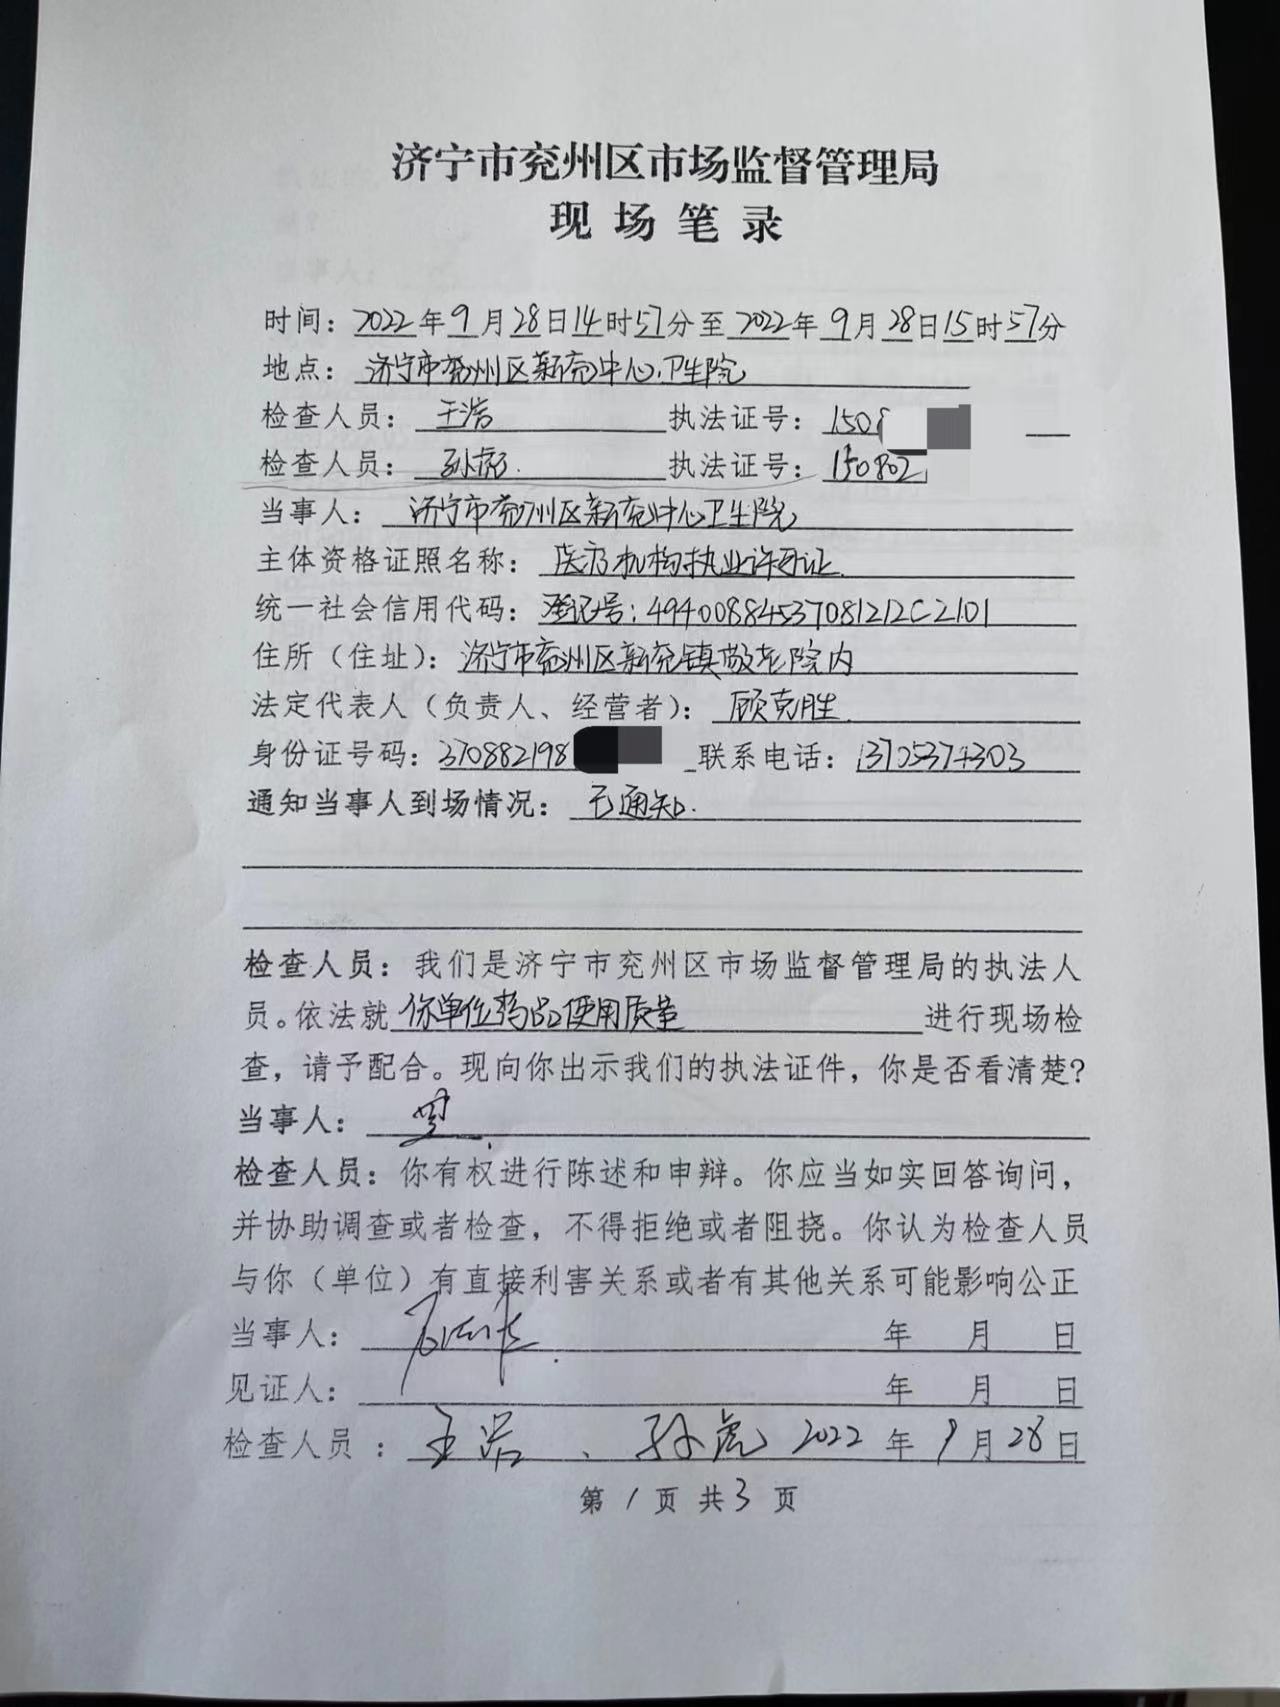 济宁市兖州区市场监督管理局
现场笔录
时间：2022年9月28日14时57分至2022年9月28日15时57分
地点：济宁市兖州区新兖中心卫生院
检查人员：王浩 执法证号：150
检查人员：孙彪 执法证号：150802
当事人：济宁市兖州区新兖中心卫生院
主体资格证照名称：医疗机构执业许可证
统一社会信用代码：登记号：49400884537081212C2101
住所（住址）：济宁市兖州区新兖镇敬老院内
法定代表人（负责人、经营者）：顾克胜
身份证号码：370882198 联系电话：13705374303
通知当事人到场情况：已通知.
检查人员：我们是济宁市兖州区市场监督管理局的执法人
员。依法就你单位药品使用质量进行现场检
查，请予配合。现向你出示我们的执法证件，你是否看清楚？
当事人：
检查人员：你有权进行陈述和申辩。你应当如实回答询问，
并协助调查或者检查，不得拒绝或者阻挠。你认为检查人员
与你（单位）有直接利害关系或者有其他关系可能影响公正
当事人： 年 月 日
见证人： 年 月 日
检查人员：王浩、孙彪 2022年9月28日
第1页共3页